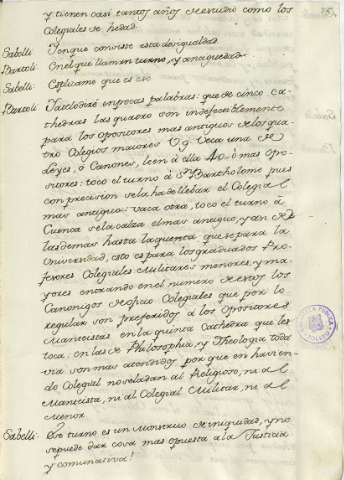 y tienen casi tantos años de estudio como los
Colegiales de hedad.
Sabelli: En que consiste esta desigualdad
Bartoli: En el que llaman turno, y anteguedad.
Sabelli: Explicame que es eso
Bartoli: Facilo diré in pocas palabras: que de cinco ca-
thedras las quatro son indefectiblemente
para los opositores mas antiguos de los qua-
tro Colegios maiores V.g. Vaca una de
Leyes, ò Canones, leen à ella 40, ò mas opo-
sitores: toco el turno à Sn. Bartholome pues
con precision se la ha de llebar el Colegial
mas antiguo: vaca otra, toco el turno à
Cuenca se la calza el mas antiguo, y an de
las demas hasta la quenta que es para la
Universidad, esto es para los graduados Pro-
fesores Colegiales Militares menores, y ma-
yores entrando en el numero de estos los
Canonigos de oficio Colegiales que por lo
regular son preferidos à los Opositores
Manteistas en la quinta Cathedra que les
toca: en las de Philosophia, y Theologia toda
via son mas atendidos por que en havien-
do Colegial no se la dan al Religioso, ni al
Manteista, ni al Colegial Militar, ni al
menor.
Sabelli: Ese turno es un Monstruo de iniquidad, y no
se puede dar cosa mas opuesta a la Justicia
y comutativa!